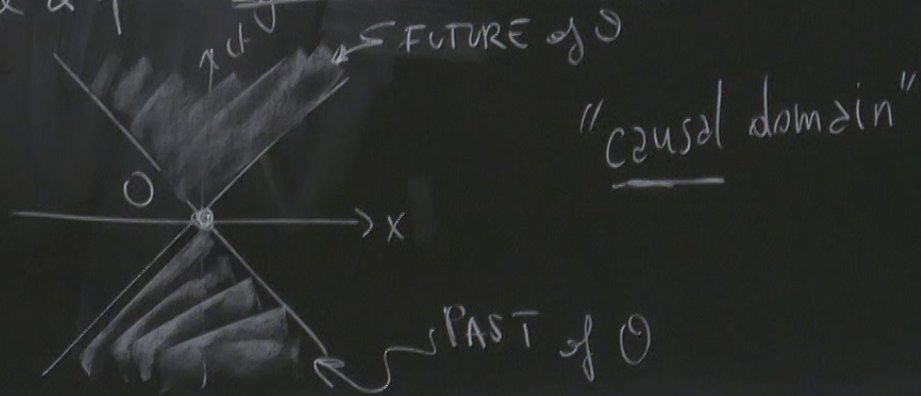 FUTURE of O
"causal domain"
O
x
PAST of O